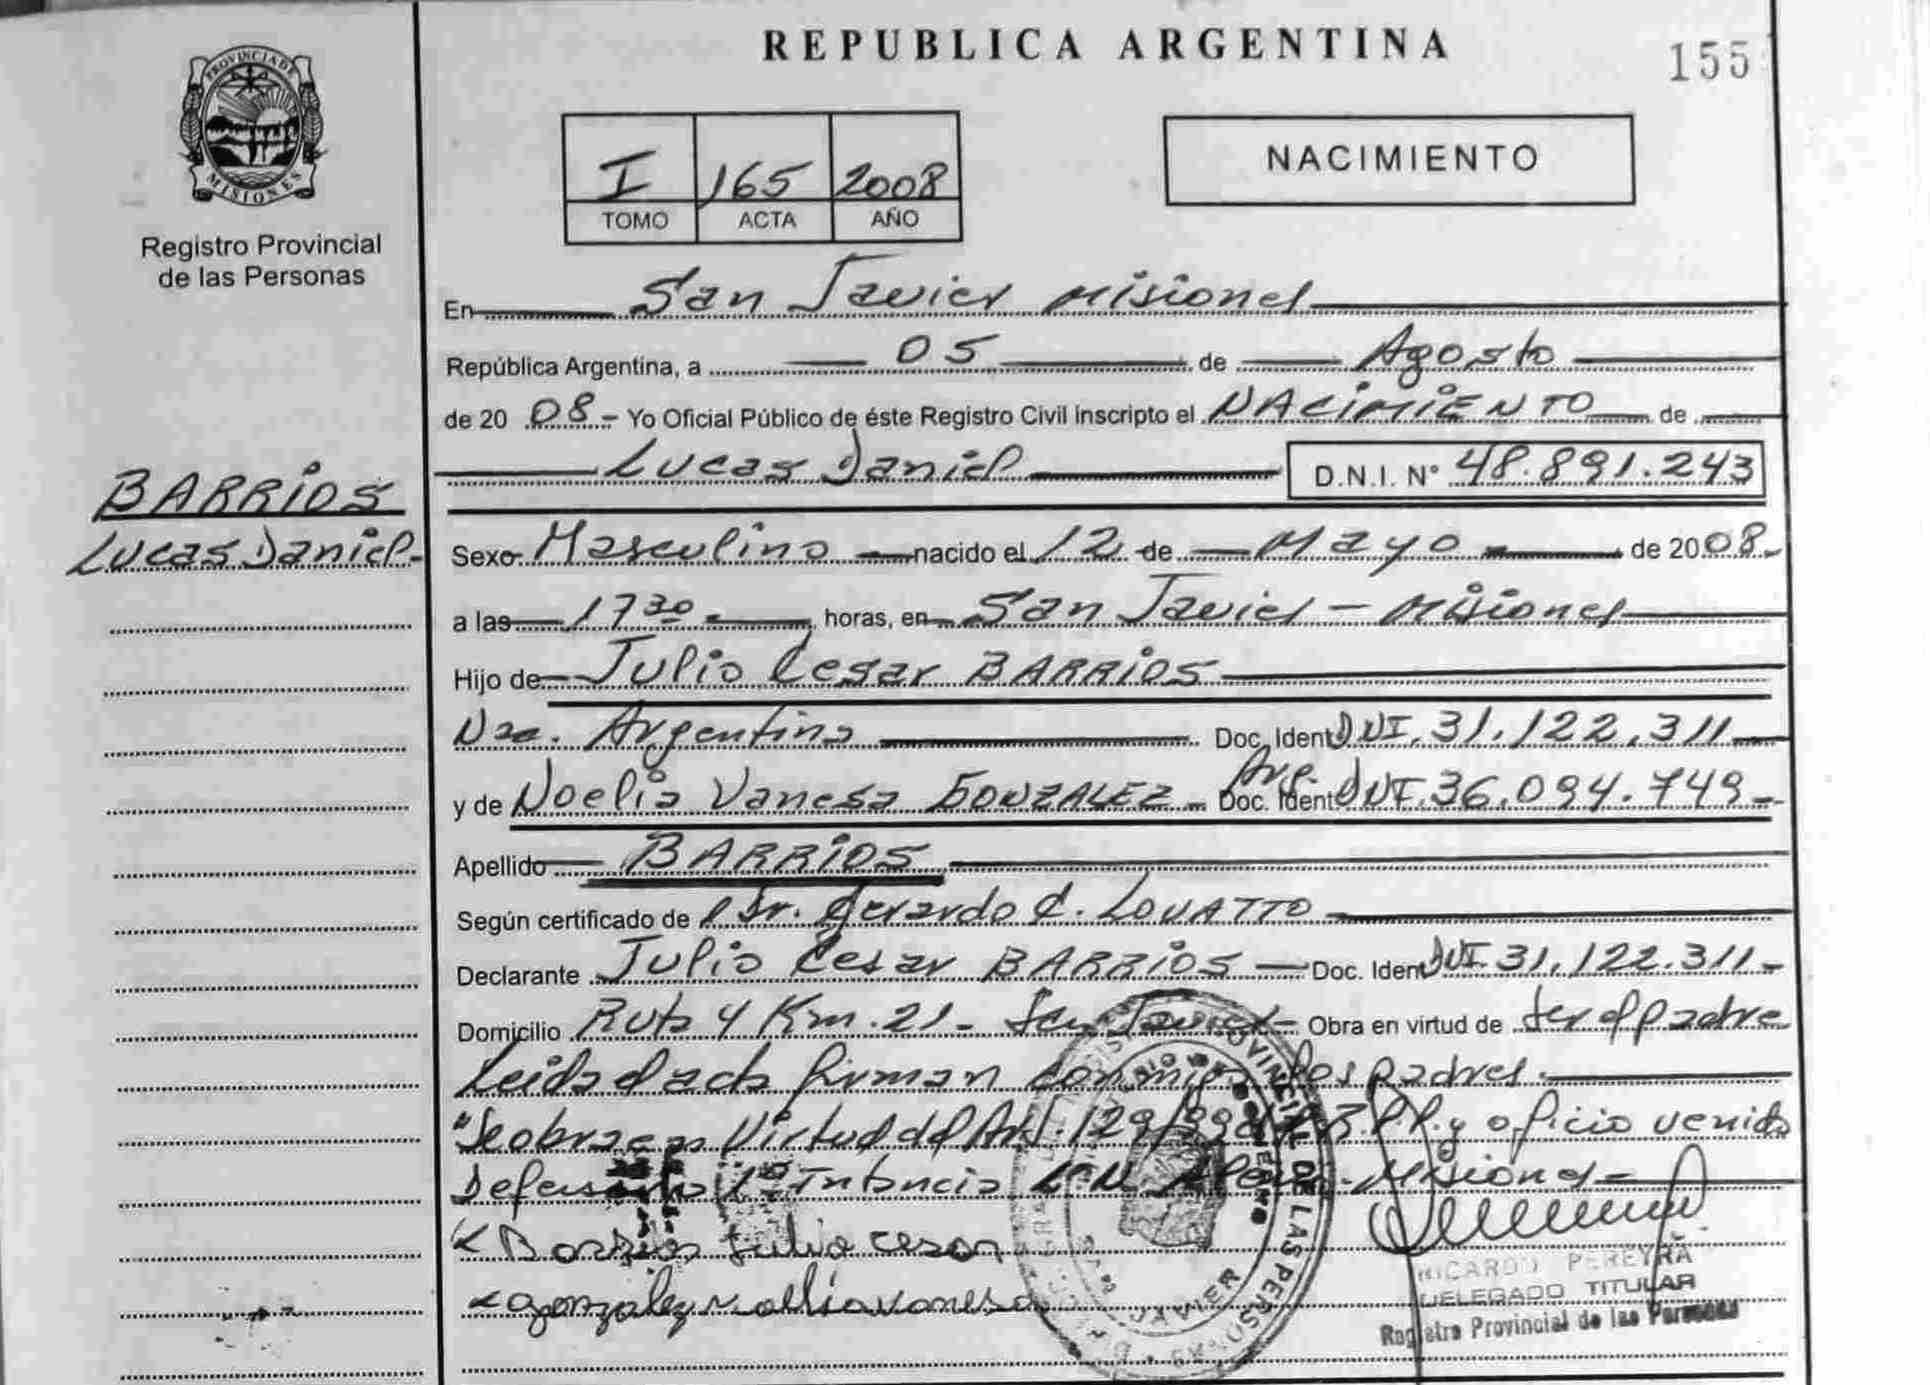 REPUBLICA ARGENTINA
155
PROVINCIA DE MISIONES
Registro Provincial
de las Personas
I 165 2008
TOMO ACTA AÑO
NACIMIENTO
En San Javier Misiones
República Argentina, a 05 de Agosto
de 20 08.- Yo Oficial Público de éste Registro Civil inscripto el NACIMIENTO de
Lucas Daniel D.N.I. Nº 48.891.243
BARRIOS
Lucas Daniel.-
Sexo Masculino nacido el 12 de Mayo de 2008.-
a las 17 30 horas, en San Javier - Misiones
Hijo de Julio Cesar BARRIOS
Nac. Argentina Doc. Ident DNI. 31.122.311
y de Noelia Vanesa GONZALEZ - Arg. Doc. Ident DNI. 36.094.749-
Apellido BARRIOS
Según certificado de Dr. Gerardo C. LOVATTO
Declarante Julio Cesar BARRIOS Doc. Ident DNI. 31.122.311-
Domicilio Ruta 4 Km. 21- San Javier- Obra en virtud de ser el padre
Leida el acta firman conmigo los padres.
"Se obra en Virtud del Art. 129/99 R.P.P. y oficio venido
Defensoria 1º Intancia L.N. Alem. Misiones-
Barrios Julio cesar
gonzalez noelia vanesa
RICARDO PEREYRA
DELEGADO TITULAR
Registro Provincial de las Personas
PROVINCIAL DE LAS PERSONAS
JAVIER